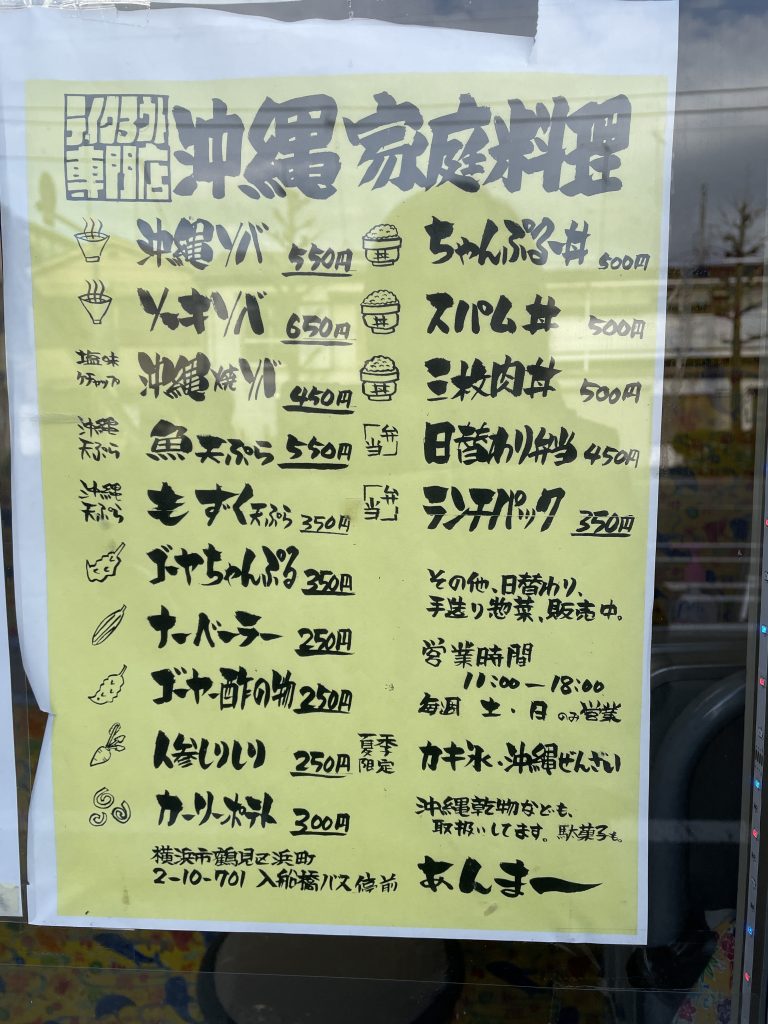 テイクアウト
専門店
沖縄家庭料理
沖縄ソバ 550円
ソーキソバ 650円
塩味
ケチャップ
沖縄焼ソバ 450円
沖縄
天ぷら
魚天ぷら 550円
沖縄
天ぷら
もずく天ぷら 350円
ゴーヤちゃんぷる 350円
ナーベーラー 250円
ゴーヤー酢の物 250円
人参しりしり 250円
カーリーポテト 300円
横浜市鶴見区浜町
2-10-701 入船橋バス停前
丼
ちゃんぷるー丼 500円
丼
スパム丼 500円
丼
三枚肉丼 500円
弁当
日替わり弁当 450円
弁当
ランチパック 350円
その他、日替わり、
手造り惣菜、販売中。
営業時間
11:00-18:00
毎週 土・日のみ営業
夏季
限定
カキ氷・沖縄ぜんざい
沖縄乾物なども、
取扱いしてます。駄菓子も。
あんまー